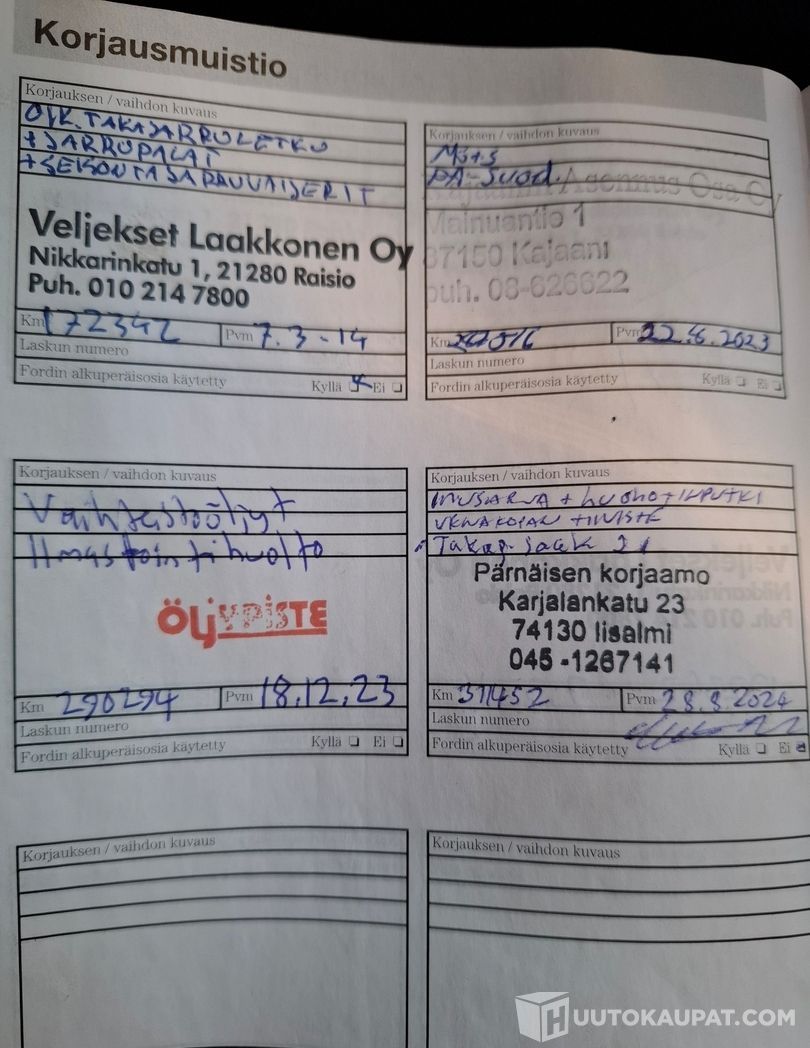 Korjausmuistio
Korjauksen / vaihdon kuvaus
OIK. TAKAJARRULETKU
+ JARRUPALAT
Veljekset Laakkonen Oy
Nikkarinkatu 1, 21280 Raisio
Puh. 010 214 7800
Km 172342 Pvm 7.3-14
Laskun numero
Fordin alkuperäisosia käytetty Kyllä Ei
Korjauksen / vaihdon kuvaus
PA-Suod.
Kajaanin Asennus Osa Oy
Mainuantie 1
87150 Kajaani
puh. 08-626622
Km Pvm 22.6.2023
Laskun numero
Fordin alkuperäisosia käytetty Kyllä Ei
Korjauksen / vaihdon kuvaus
Vaihteistoöljyt
Ilmastointihuolto
ÖLJYPISTE
Km 290294 Pvm 18.12.23
Laskun numero
Fordin alkuperäisosia käytetty Kyllä Ei
Korjauksen / vaihdon kuvaus
Pärnäisen korjaamo
Karjalankatu 23
74130 Iisalmi
045 -1267141
Km 311452 Pvm 28.8.2024
Laskun numero
Fordin alkuperäisosia käytetty Kyllä Ei
Korjauksen / vaihdon kuvaus
Korjauksen / vaihdon kuvaus
HUUTOKAUPAT.COM